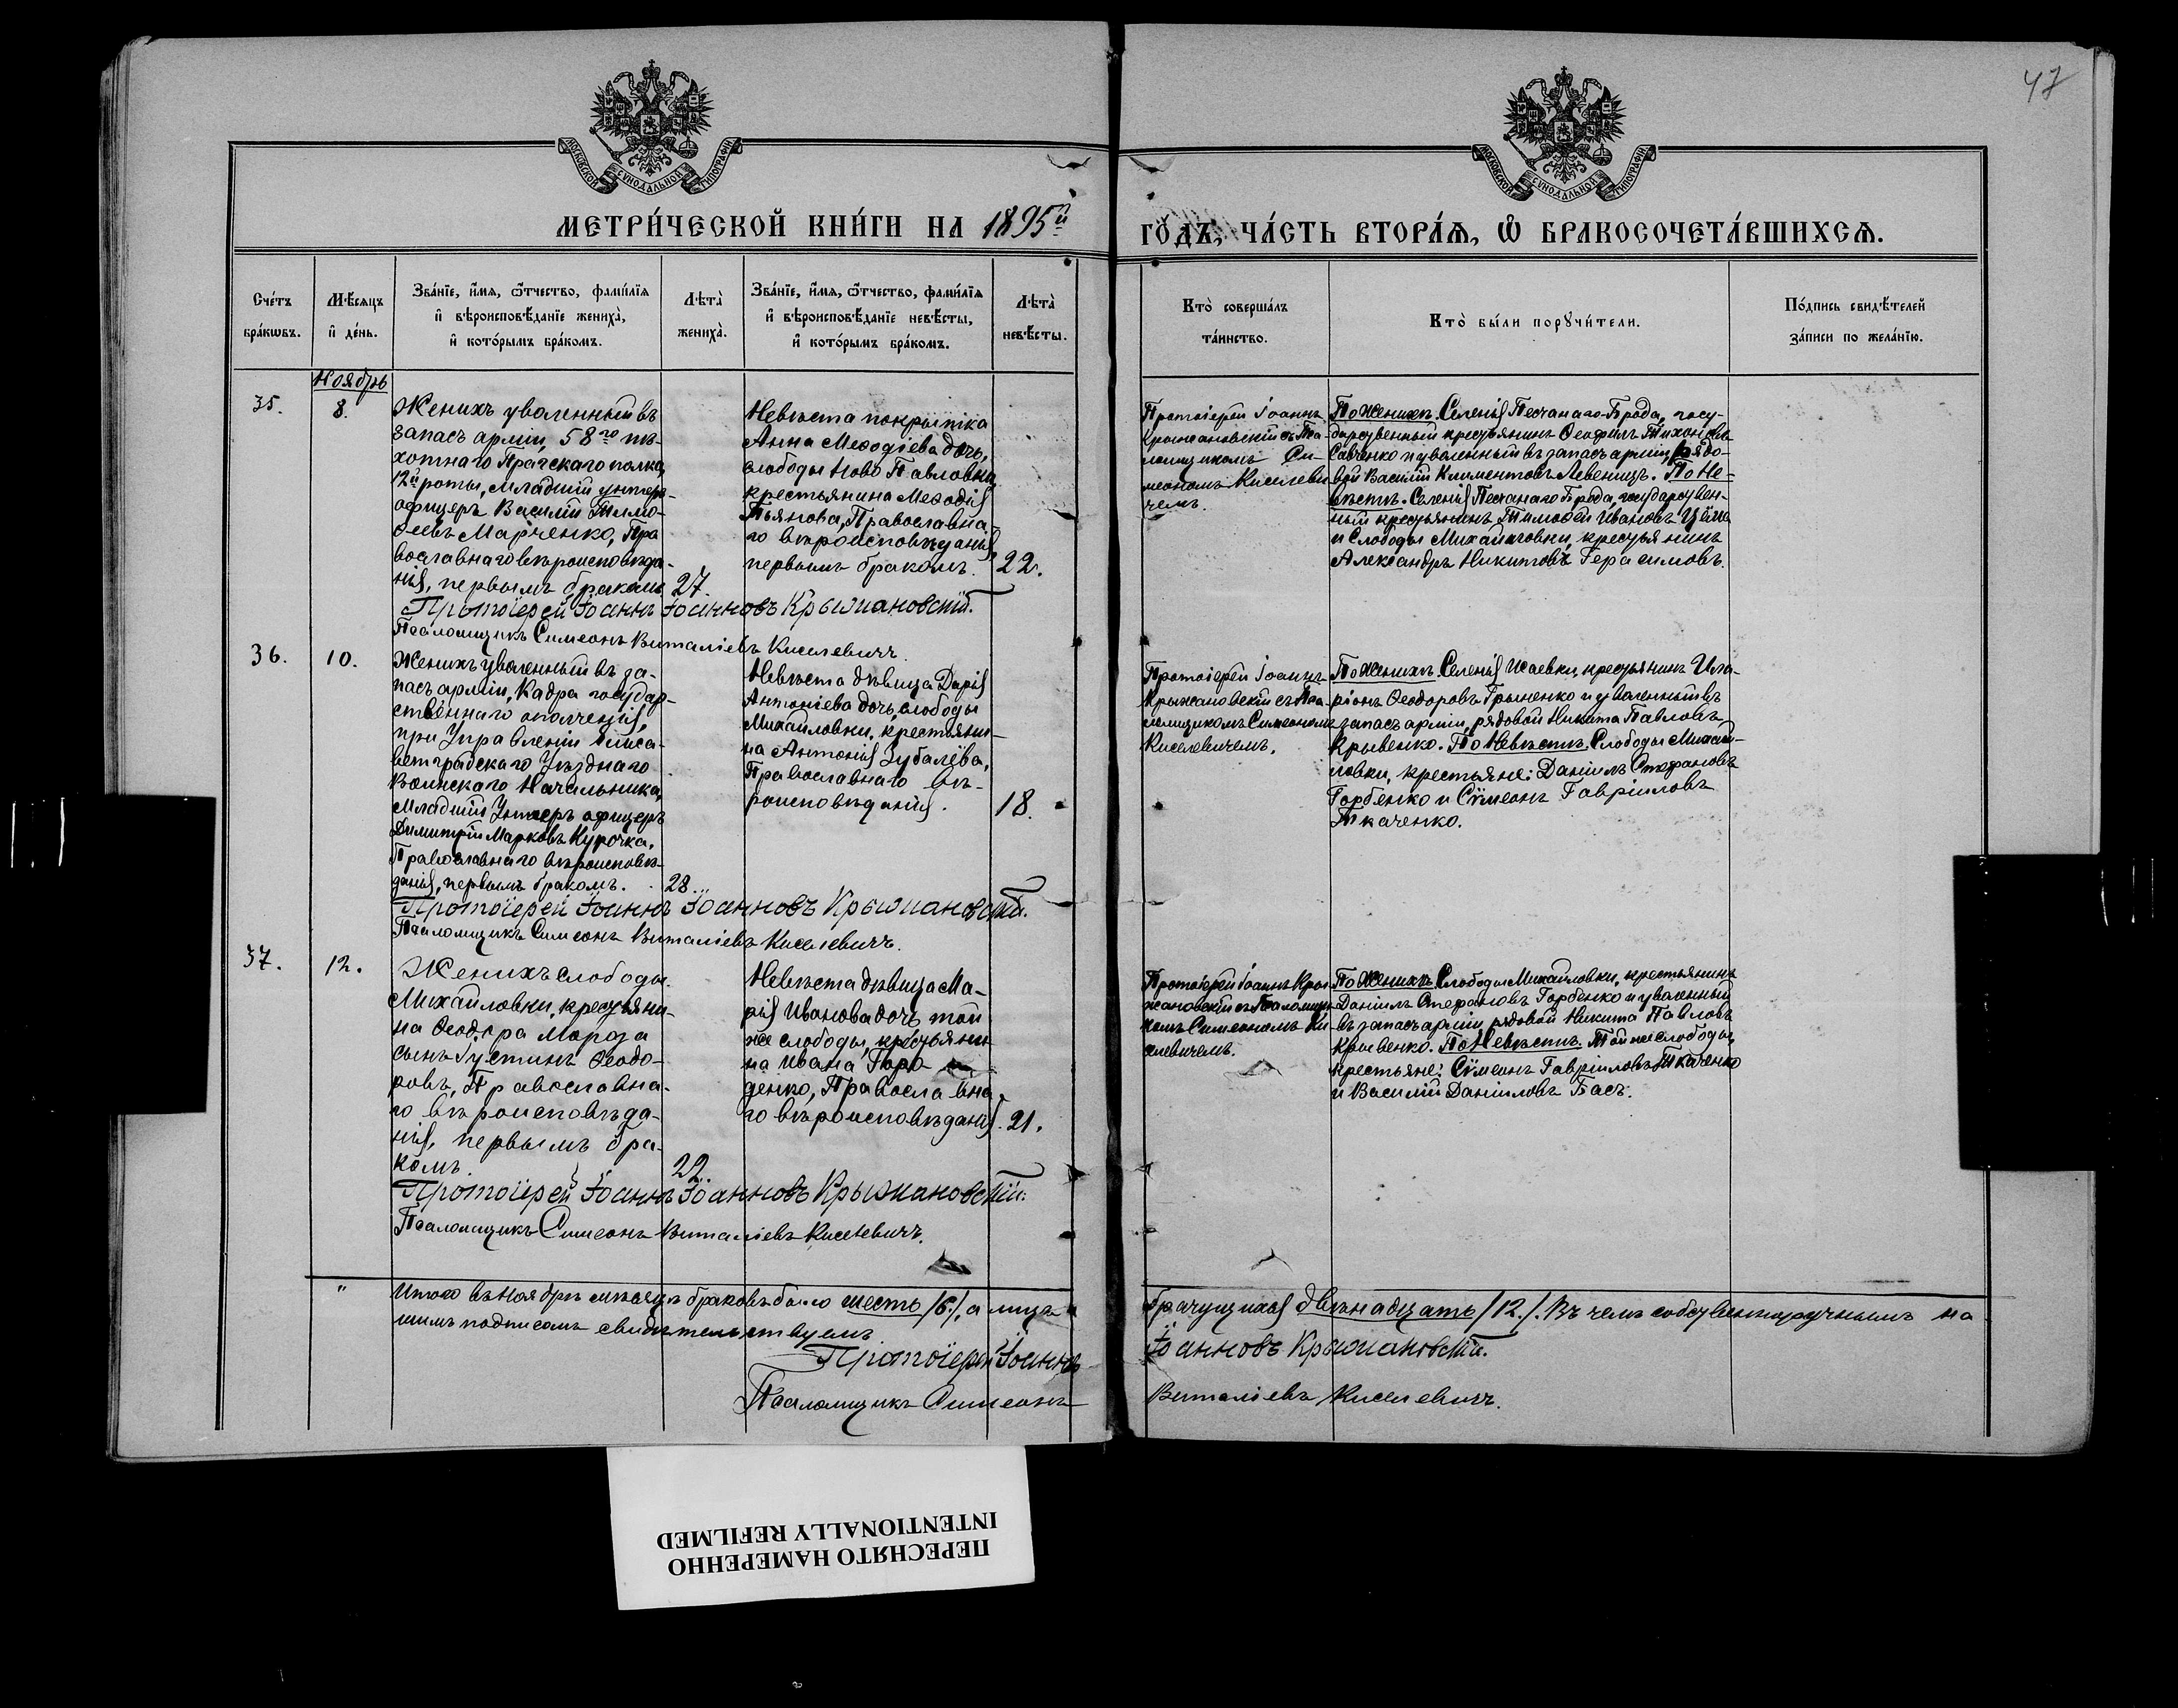 47
МОСКОВСКОЙ СУНОДАЛЬНОЙ ТИПОГРАФІИ
МОСКОВСКОЙ СУНОДАЛЬНОЙ ТИПОГРАФІИ
МЕТРИ́ЧЕСКОЙ КНИ́ГИ НА 1895й
ГО́ДЪ, ЧА́СТЬ ВТОРА́Я, Ѡ БРАКОСОЧЕТА́ВШИХСЯ.
Сче́тъ
бра́кѡвъ.
Мѣ́сяцъ
и҆ де́нь.
Зва́нїе, и҆́мя, ѻ҆́тчество, фами́лїя
и҆ вѣроисповѣ́данїе жениха̀,
и҆ кото́рымъ бра́комъ.
Лѣта̀
жениха̀.
Зва́нїе, и҆́мя, ѻ҆́тчество, фами́лїя
и҆ вѣроисповѣ́данїе невѣ́сты,
и҆ кото́рымъ бра́комъ.
Лѣта̀
невѣ́сты.
Кто̀ соверша́лъ
та́инство.
Кто̀ бы́ли порꙋчи́тели.
По́дпись свидѣ́телей
за́писи по жела́нїю.
Ноябрь
35.
8.
Женихъ уволенный въ
запасъ арміи, 58го пѣ-
хотнаго Прагскаго полка,
12й роты, младшій унтеръ-
офицеръ Василій Тимо-
ѳеевъ Марченко, Пра
вославнаго вѣроисповѣда-
нія, первымъ бракомъ.
27.
Невѣста покрытка
Анна Меѳодіева дочь,
слободы Ново Павловки,
крестьянина Меѳодія
Пьянова, Православна-
го вѣроисповѣданія,
первымъ бракомъ.
22.
Протоіерей Іоаннъ
Крыжановскій съ Пса-
ломщикомъ Си-
меономъ Киселеви
чемъ.
По Женихѣ. Селенія Песчанаго-Брода, госу-
дарственный крестьянинъ Ѳеофилъ Тихоновъ
Савченко и уволенный въ запасъ арміи, рядо-
вой Василій Климентовъ Левенецъ. По Не-
вѣстѣ. Селенія Песчанаго Брода, государствен-
ный крестьянинъ Тимоѳей Ивановъ
и Слободы Михайловки, крестьянинъ
Александръ Никитовъ Герасимовъ.
Протоіерей Іоаннъ Іоанновъ Крыжановскій.
Псаломщикъ Симеонъ Виталіевъ Киселевичъ.
36.
10.
Женихъ уволенный въ за-
пасъ арміи, Кадра государ-
ственнаго ополченія,
при Управленіи Елиса-
ветградскаго Уѣзднаго
Воинскаго Начальника,
Младшій Унтеръ офицеръ
Димитрій Марковъ Курочка,
Православнаго вѣроисповѣ-
данія, первымъ бракомъ.
28.
Невѣста дѣвица Дарія
Антоніева дочь, слободы
Михайловки, крестьяни-
на Антонія Зубалѣва,
Православнаго вѣ-
роисповѣданія.
18.
Протоіерей Іоаннъ
Крыжановскій съ Пса-
ломщикомъ Симеономъ
Киселевичемъ.
По Женихѣ. Селенія Исаевки, крестьянинъ Ила-
ріонъ Ѳеодоровъ Грыненко и уволенный въ
запасъ арміи, рядовой Никита Павловъ
Крывенко. По Невѣстѣ. Слободы Михай-
ловки, крестьяне: Даніилъ Стефановъ
Горбенко и Сѵмеонъ Гавріиловъ
Ткаченко.
Протоіерей Іоаннъ Іоанновъ Крыжановскій.
Псаломщикъ Симеонъ Виталіевъ Киселевичъ.
37.
12.
Женихъ слободы
Михайловки, крестьяни-
на Ѳеодора Мороза
сынъ Густинъ Ѳеодо-
ровъ, Православна-
го вѣроисповѣда-
нія, первымъ бра-
комъ.
22.
Невѣста дѣвица Ма-
рія Иванова дочь той
же слободы, крестьяни-
на Ивана Горо-
денко, Православна-
го вѣроисповѣданія.
21.
Протоіерей Іоаннъ Кры-
жановскій съ Псаломщи-
комъ Симеономъ Ки-
селевичемъ.
По Женихѣ. Слободы Михайловки, крестьянинъ
Даніилъ Стефановъ Горбенко и уволенный
въ запасъ арміи, рядовой Никита Павловъ
Крывенко. По Невѣстѣ. Той же слободы,
крестьяне: Сѵмеонъ Гавріиловъ Ткаченко
и Василій Даніиловъ Басъ.
Протоіерей Іоаннъ Іоанновъ Крыжановскій.
Псаломщикъ Симеонъ Виталіевъ Киселевичъ.
" Итого въ Ноябрѣ мѣсяцѣ браковъ было шесть /6./, а лицъ
брачущихся двѣнадцать /12./. Въ чемъ собственноручнымъ на
шимъ подписомъ свидѣтельствуемъ.
Протоіерей Іоаннъ Іоанновъ Крыжановскій.
Псаломщикъ Симеонъ Виталіевъ Киселевичъ.
ПЕРЕСНЯТО НАМЕРЕННО
INTENTIONALLY REFILMED